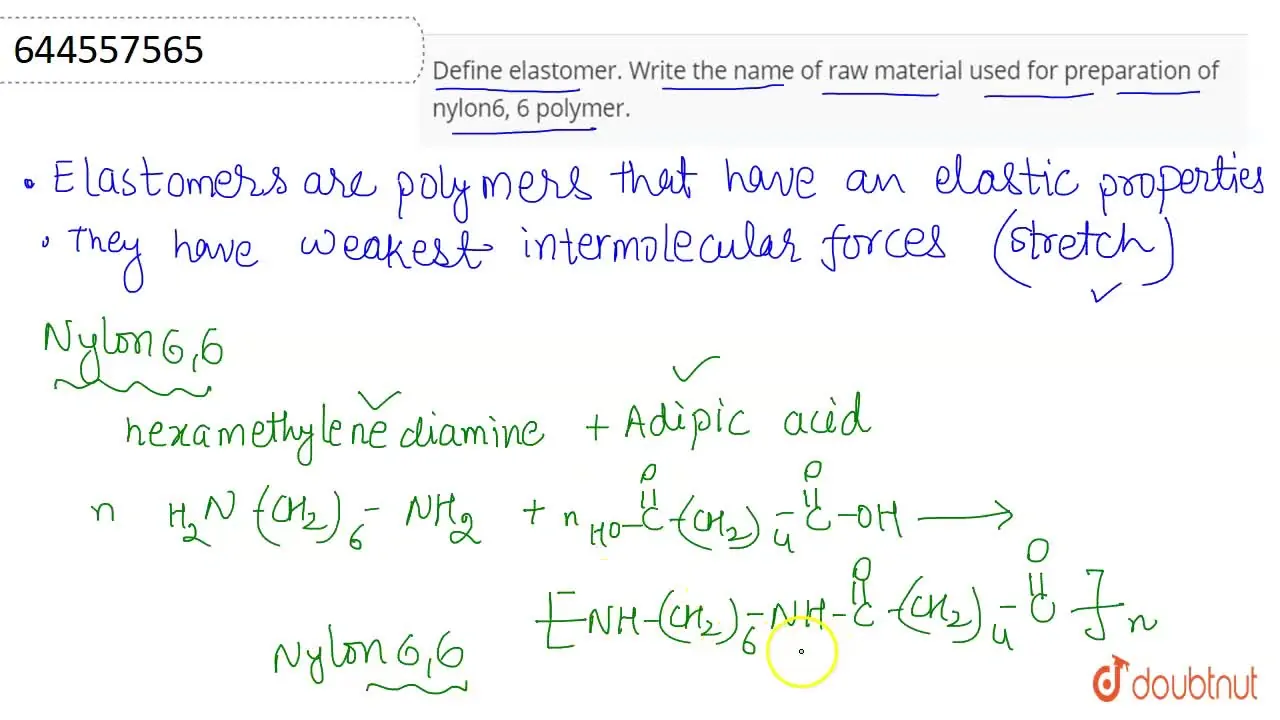 644557565
Define elastomer. Write the name of raw material used for preparation of
nylon6, 6 polymer.
• Elastomers are polymers that have an elastic properties
• They have weakest intermolecular forces (stretch)
Nylon 6,6
hexamethylene diamine + Adipic acid
n H2N-(CH2)6-NH2 + n HO-C(=O)-(CH2)4-C(=O)-OH ⟶
[NH-(CH2)6-NH-C(=O)-(CH2)4-C(=O)]n
Nylon 6,6
doubtnut